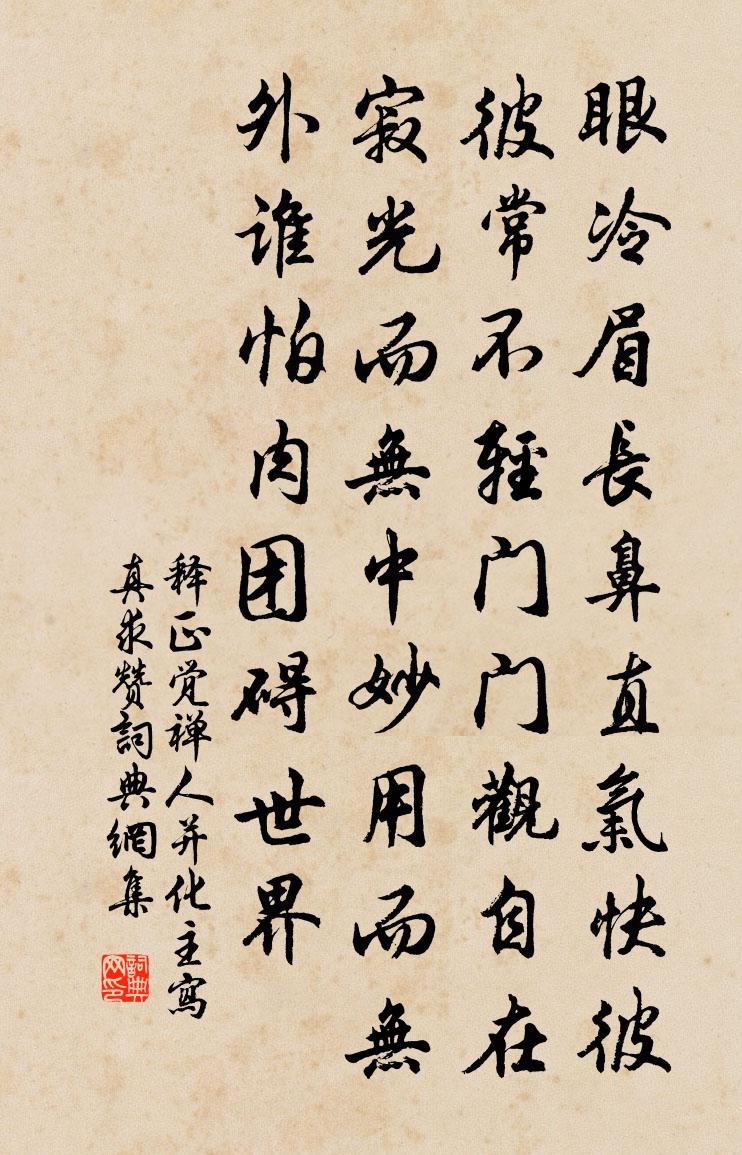 眼冷眉長鼻直氣快彼
彼常不輕門門觀自在
寂光而無中妙用而無
外誰怕肉团碍世界
释正觉禅人并化主寫
真求赞詞典網集
詞典网印